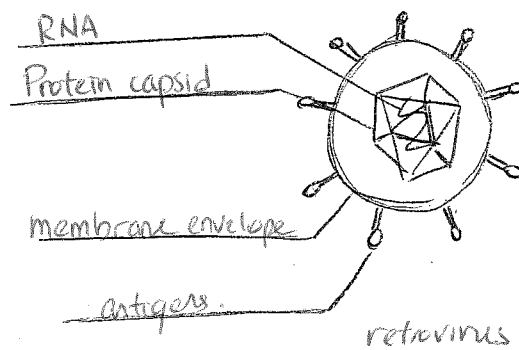 RNA
Protein capsid
membrane envelope
antigens.
retrovirus